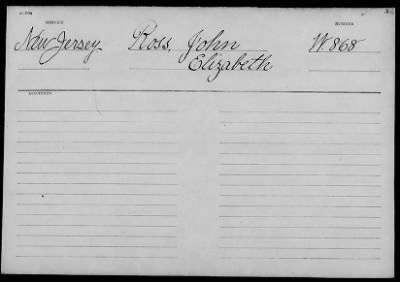 SERVICE NUMBER
New Jersey Ross, John W. 868
Elizabeth
CONTENTS